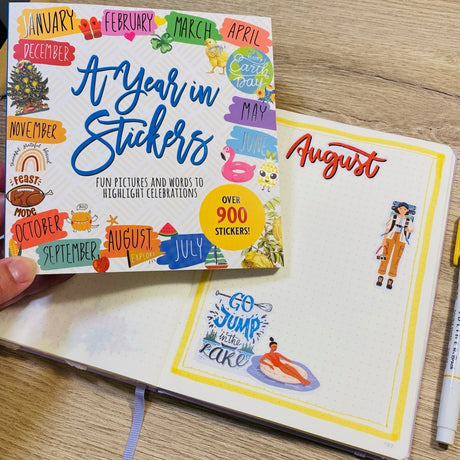 JANUARY
FEBRUARY
MARCH
APRIL
DECEMBER
Earth
DAY
MAY
NOVEMBER
JUNE
A Year in
Stickers
FUN PICTURES AND WORDS TO
HIGHLIGHT CELEBRATIONS
OVER
900
STICKERS!
FEAST
MODE
OCTOBER
SEPTEMBER
AUGUST
EXPLORE
JULY
August
GO
JUMP
in the
LAKE